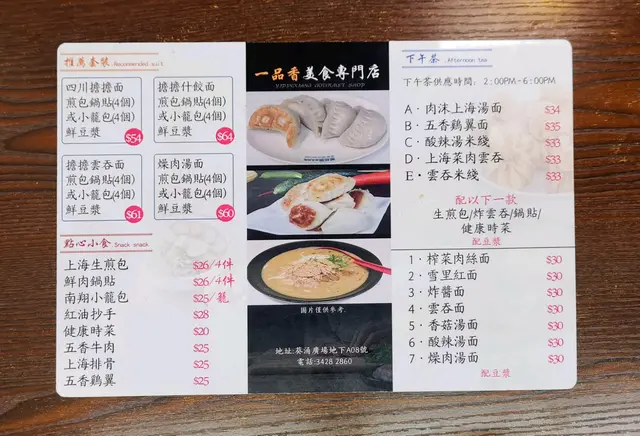 推薦套裝 Recommended suit
四川擔擔面
煎包鍋貼(4個)
或小籠包(4個)
鮮豆漿
$54
擔擔什餃面
煎包鍋貼(4個)
或小籠包(4個)
鮮豆漿
$64
擔擔雲吞面
煎包鍋貼(4個)
或小籠包(4個)
鮮豆漿
$61
燥肉湯面
煎包鍋貼(4個)
或小籠包(4個)
鮮豆漿
$60
點心小食 Snack snack
上海生煎包 $26/4件
鮮肉鍋貼 $26/4件
南翔小籠包 $25/籠
紅油抄手 $28
健康時菜 $20
五香牛肉 $25
上海排骨 $25
五香鷄翼 $25
一品香美食專門店
圖片僅供參考.
地址:葵涌廣場地下A08號
電話:3428 2860
下午茶 Afternoon tea
下午茶供應時間: 2:00PM-6:00PM
A·肉沫上海湯面 $34
B·五香鷄翼面 $35
C·酸辣湯米綫 $33
D·上海菜肉雲吞 $33
E·雲吞米綫 $33
配以下一款
生煎包/炸雲吞/鍋貼/
健康時菜
配豆漿
1·榨菜肉絲面 $30
2·雪里紅面 $30
3·炸醬面 $30
4·雲吞面 $30
5·香菇湯面 $30
6·酸辣湯面 $30
7·燥肉湯面 $30
配豆漿